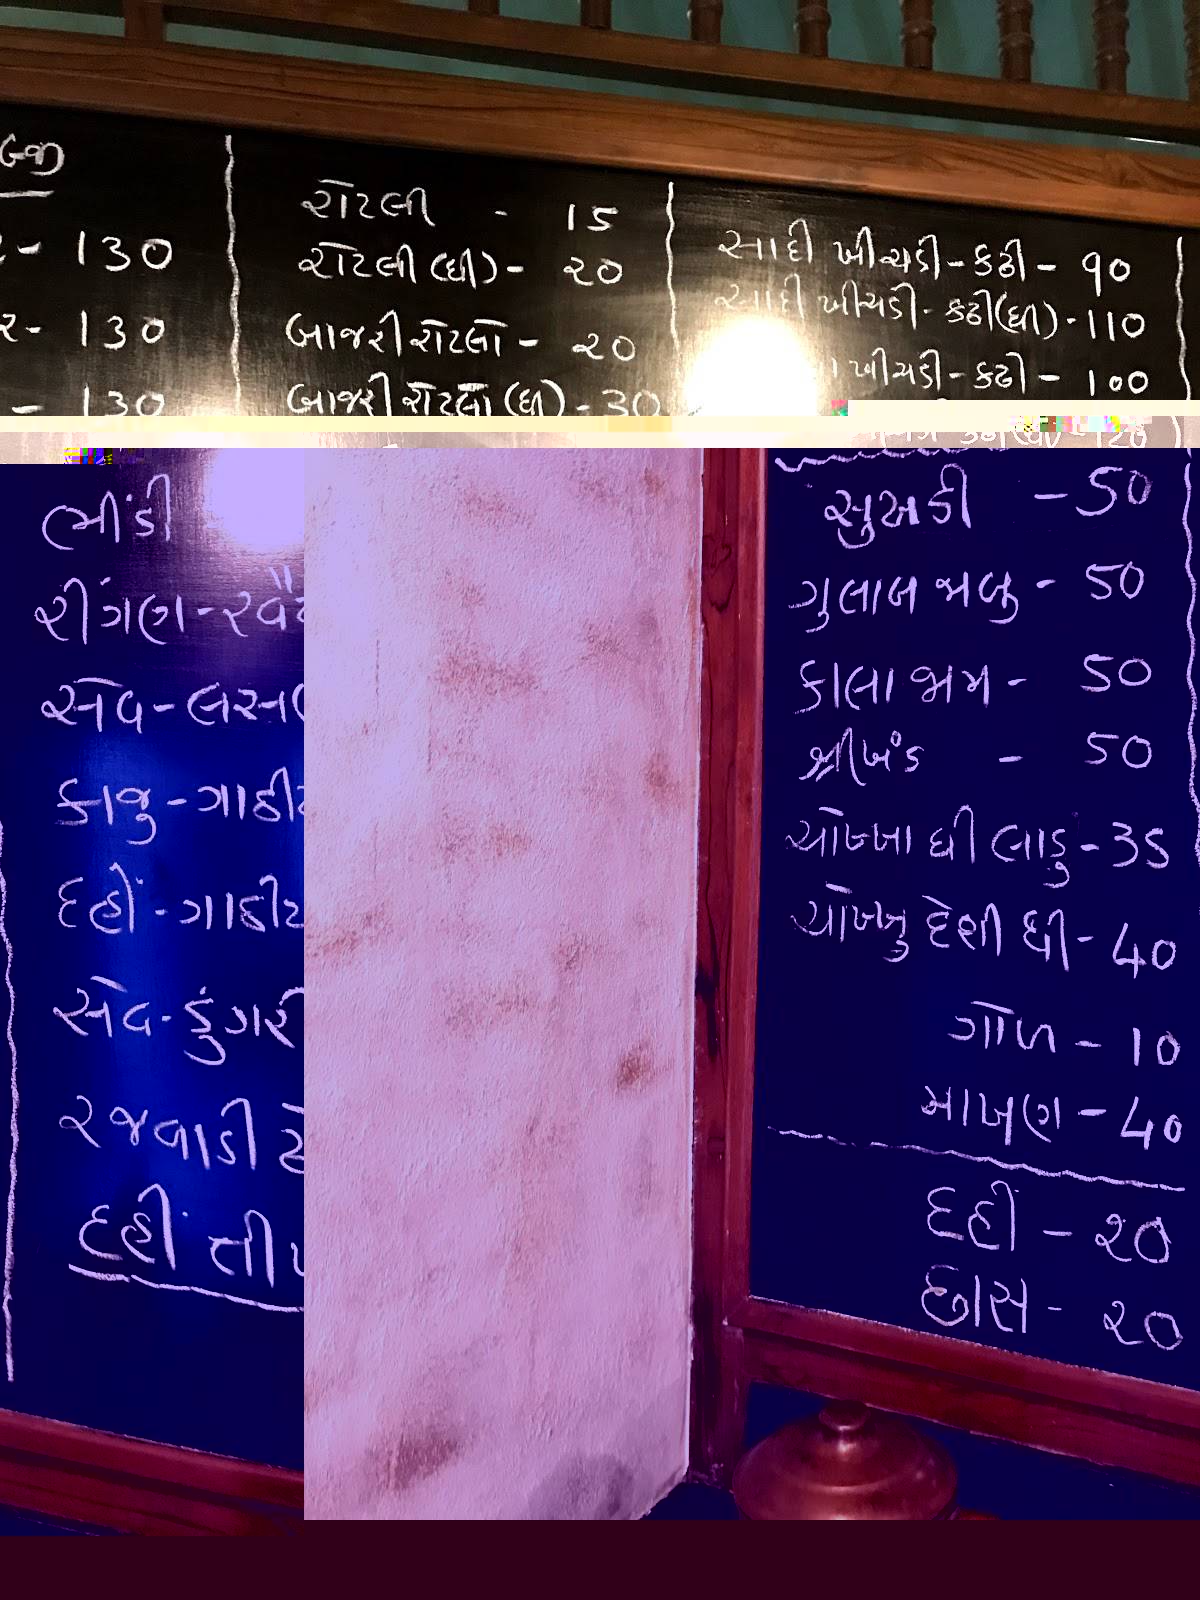 - 130
- 130
- 130
રોટલી - 15
રોટલી (ઘી) - ૨૦
બાજરી રોટલો - ૨૦
બાજરી રોટલો (ઘી) - 30
સાદી ખીચડી - કઢી - ૧૦
સાદી ખીચડી - કઢી (ઘી) - 110
ખીચડી - કઢી - 100
ભીંડી
રીંગણ -
સેવ -
કાજુ -
દહીં -
સેવ - ડુંગરી
રજવાડી
દહીં
સુખડી - 50
ગુલાબ જાબુ - 50
કાલા જામ - 50
શ્રીખંડ - 50
ચોખ્ખા ઘી લાડુ - 35
ચોખ્ખુ દેશી ઘી - 40
ગોળ - 10
માખણ - 40
દહી - ૨૦
છાસ - ૨૦